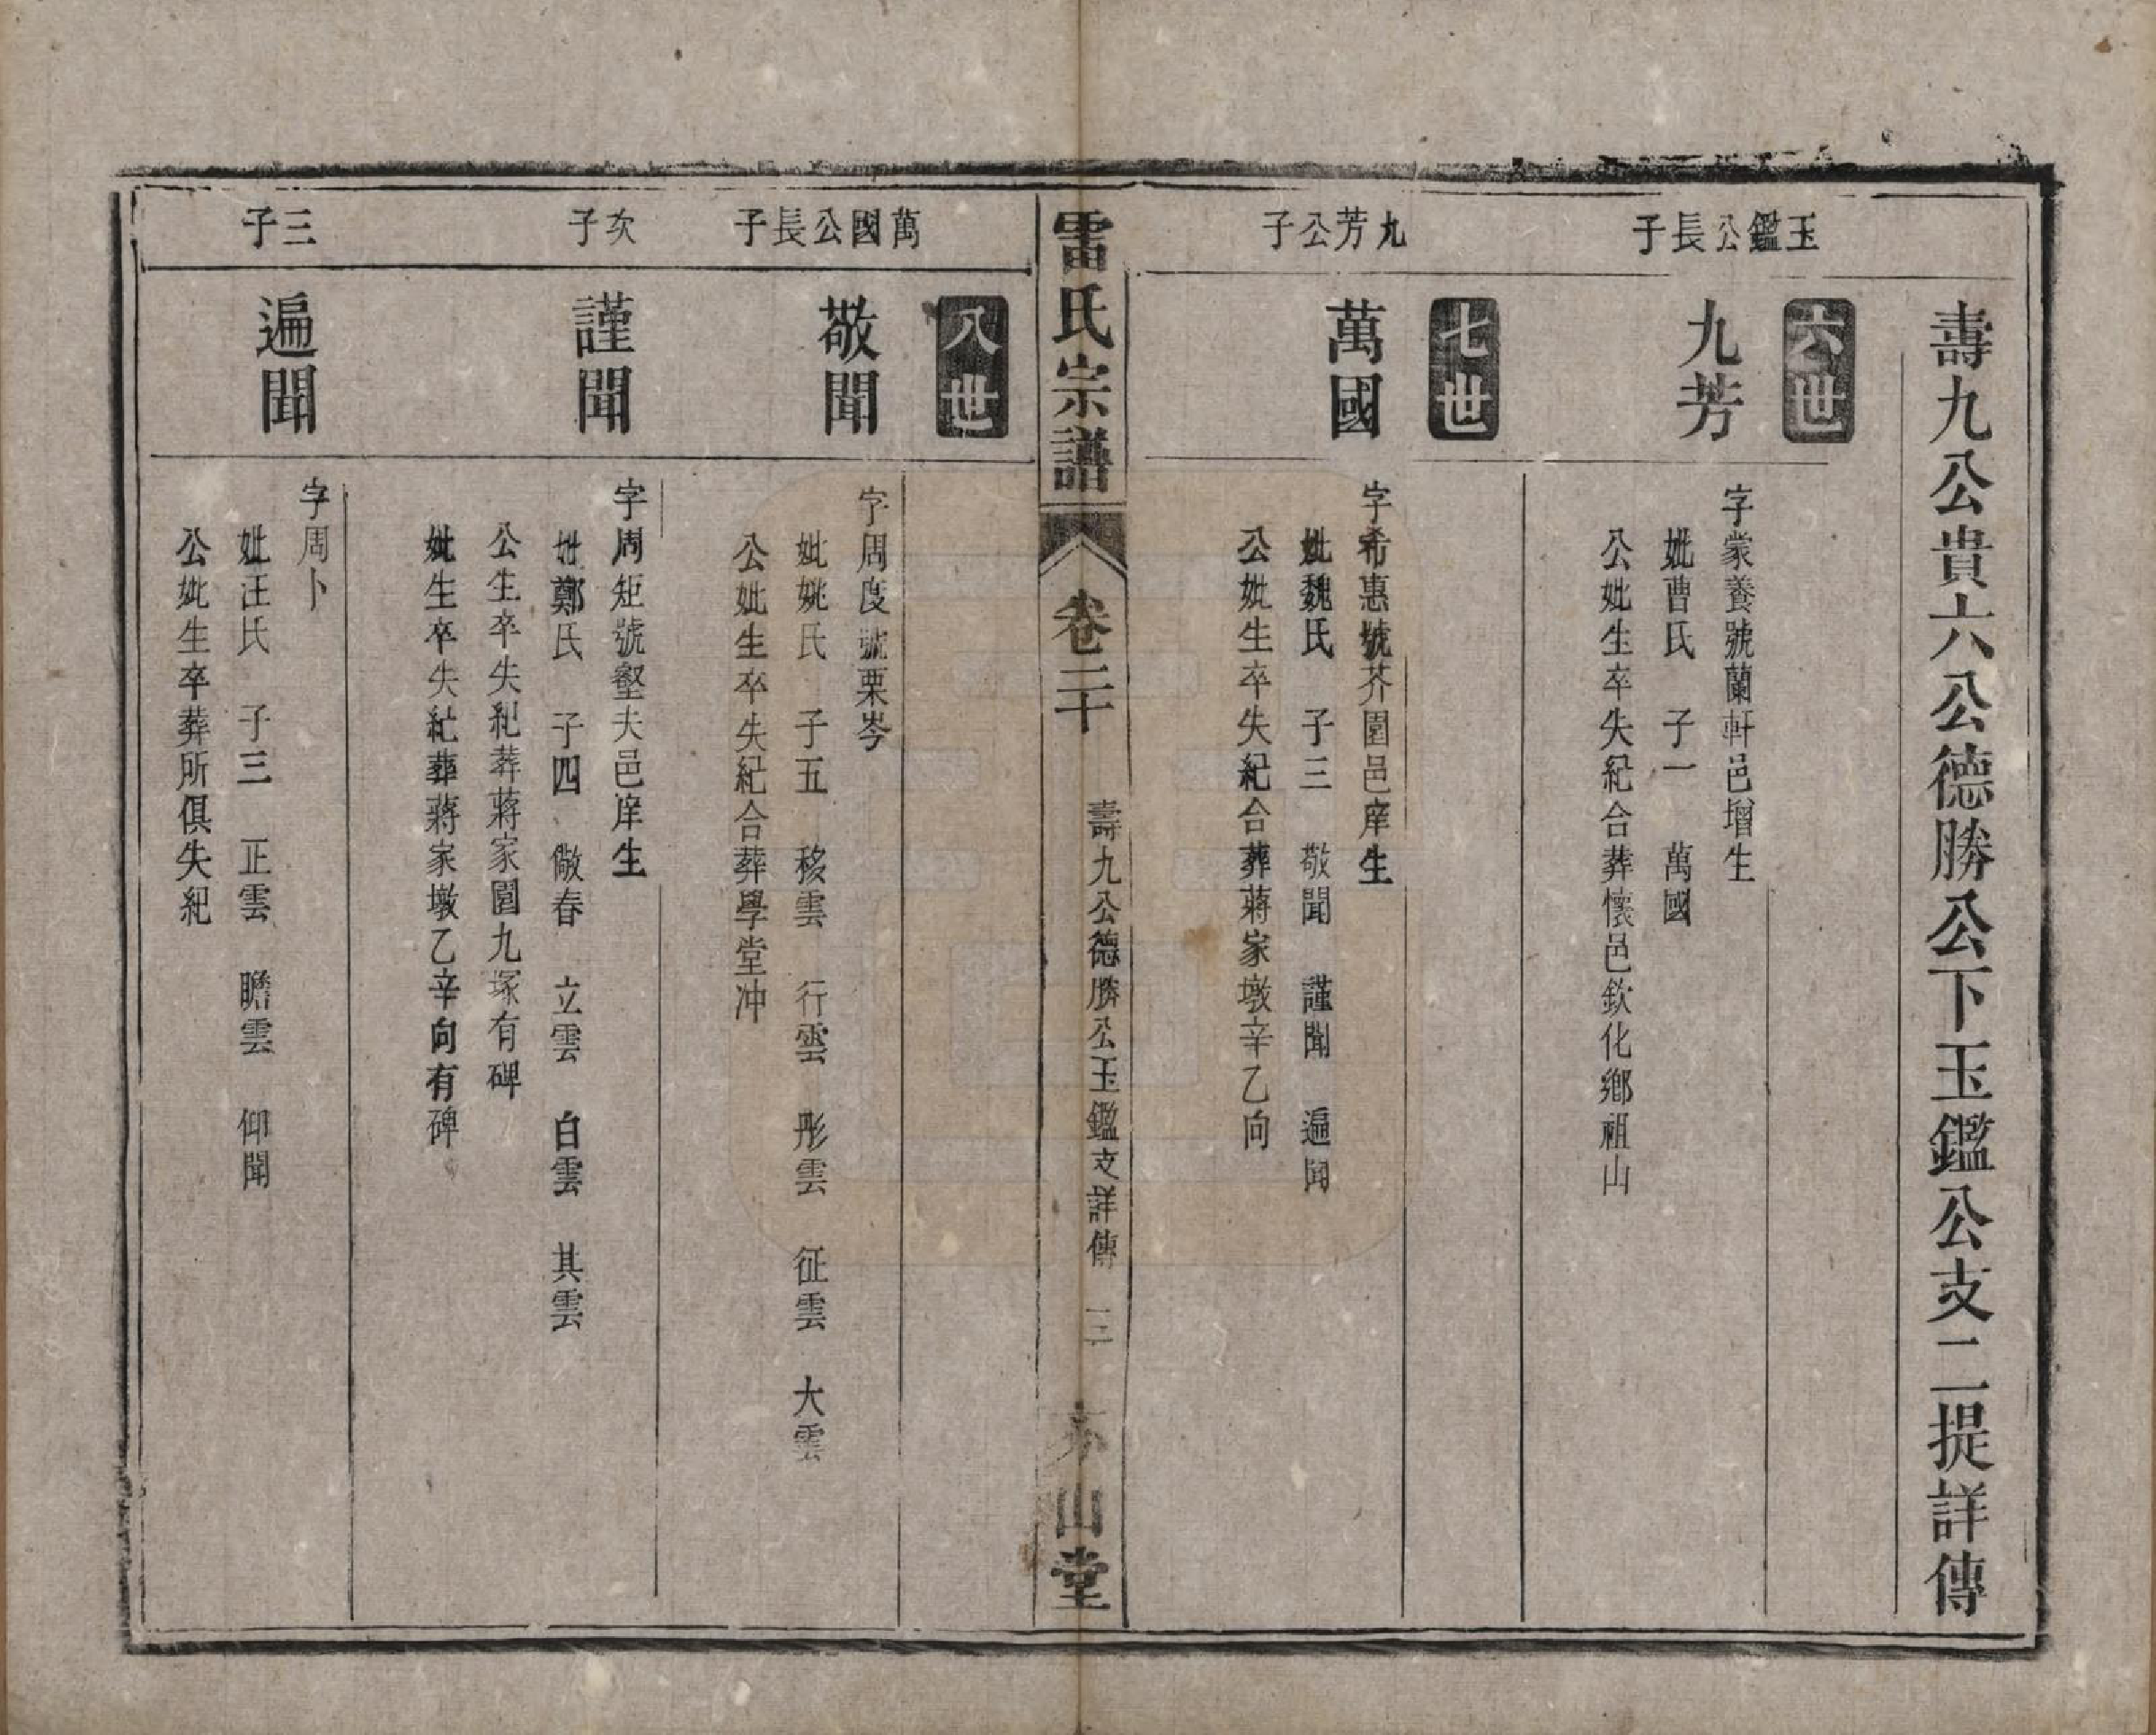 壽九公貴六公德勝公下玉鑑公支二提詳傳
六世
玉鑑公長子
九芳
字蒙養號蘭軒邑增生
妣曹氏　子一　萬國
公妣生卒失紀合葬懷邑欽化鄉祖山
七世
九芳公子
萬國
字希惠號芥園邑庠生
妣魏氏　子三　敬聞　謹聞　遍聞
公妣生卒失紀合葬蔣家墩辛乙向
雷氏宗譜　卷二十　壽九公德勝公玉鑑支詳傳　三　山堂
八世
萬國公長子
敬聞
字周度號栗岑
妣姚氏　子五　移雲　行雲　彤雲　征雲　大雲
公妣生卒失紀合葬學堂冲
次子
謹聞
字周矩號壑夫邑庠生
妣鄭氏　子四　儆春　立雲　白雲　其雲
公生卒失紀葬蔣家園九塚有碑
妣生卒失紀葬蔣家墩乙辛向有碑
三子
遍聞
字周卜
妣汪氏　子三　正雲　瞻雲　仰聞
公妣生卒葬所俱失紀